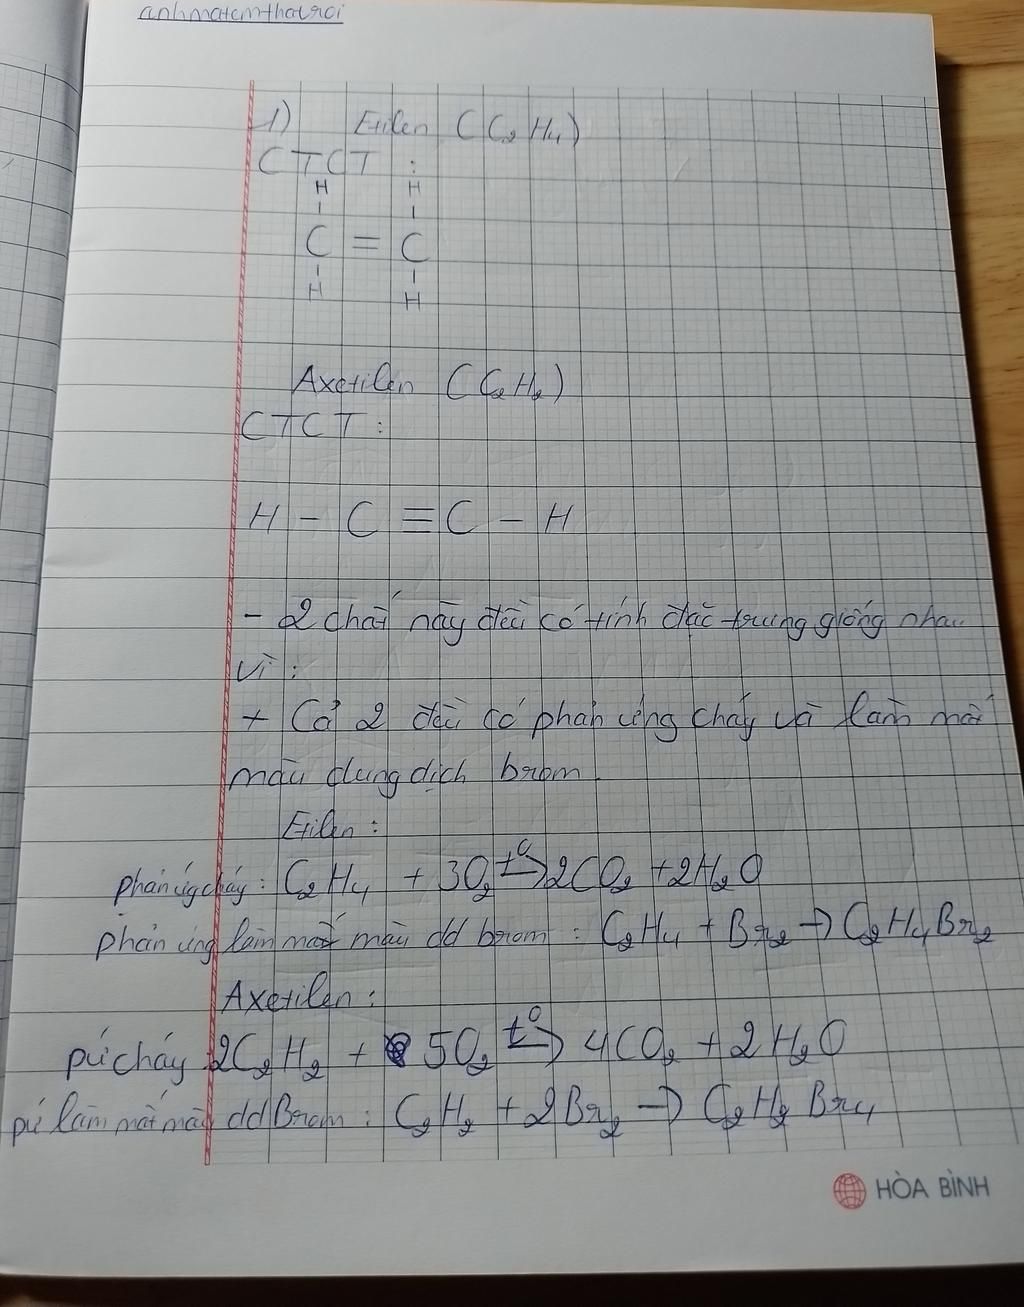 anhmatemthatroi
1) Etilen (C₂H₄)
CTCT :
H H
| |
C = C
| |
H H
Axetilen (C₂H₂)
CTCT :
H - C ≡ C - H
- 2 chất này đều có tính đặc trưng giống nhau
vì :
+ Cả 2 đều có phản ứng cháy và làm mất
màu dung dịch brom.
Etilen :
phản ứg cháy : C₂H₄ + 3O₂ -t⁰-> 2CO₂ + 2H₂O
phản ứng làm mất màu dd brom : C₂H₄ + Br₂ → C₂H₄Br₂
Axetilen :
pứ cháy 2C₂H₂ + 5O₂ -t⁰-> 4CO₂ + 2H₂O
pứ làm mất màu dd Brom : C₂H₂ + 2Br₂ → C₂H₂Br₄
HÒA BÌNH